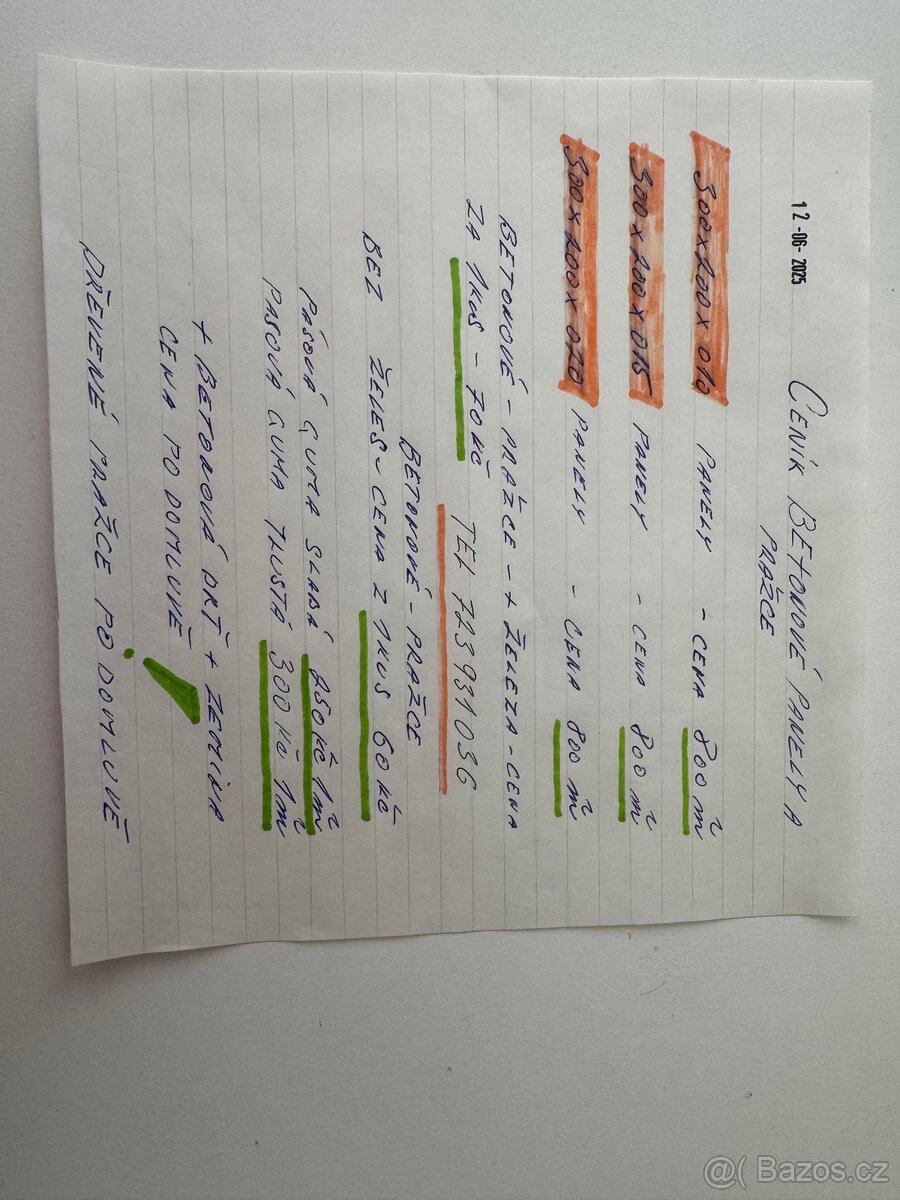 12-06-2025
CENÍK BETONOVÉ PANELY A
PRAŽCE
300x100x010 PANELY - CENA 800 m²
300x100x015 PANELY - CENA 800 m²
300x200x020 PANELY - CENA 800 m²
BETONOVÉ - PRAŽCE - + ŽELEZA - CENA
ZA 1KUS - 70KČ TEL 773931036
BETONOVÉ - PRAŽCE
BEZ ŽELES - CENA Z 1KUS 60KČ
PÁSOVÁ GUMA SLABÁ 250KČ 1m²
PASOVÁ GUMA TLUSTÁ 300KČ 1m²
+ BETONOVÁ DRŤ + ZEMINA
CENA PO DOMLUVĚ
DŘEVENÉ PRAŽCE PO DOMLUVĚ
@( Bazos.cz